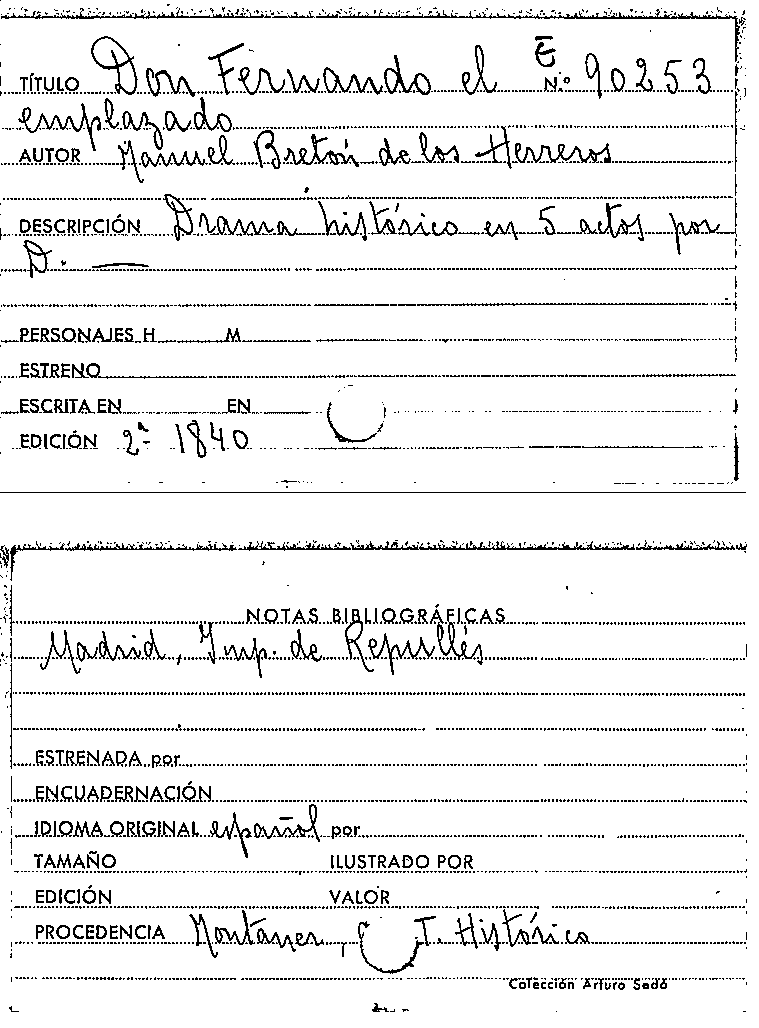 TÍTULO Don Fernando el E N.º 90253
emplazado
AUTOR Manuel Bretón de los Herreros
DESCRIPCIÓN Drama histórico en 5 actos por
D. —
PERSONAJES H M
ESTRENO
ESCRITA EN EN
EDICIÓN 2ª 1840
NOTAS BIBLIOGRÁFICAS
Madrid, Imp. de Repullés
ESTRENADA por
ENCUADERNACIÓN
IDIOMA ORIGINAL español por
TAMAÑO ILUSTRADO POR
EDICIÓN VALOR
PROCEDENCIA Montaner, T. Histórico
Colección Arturo Sedó